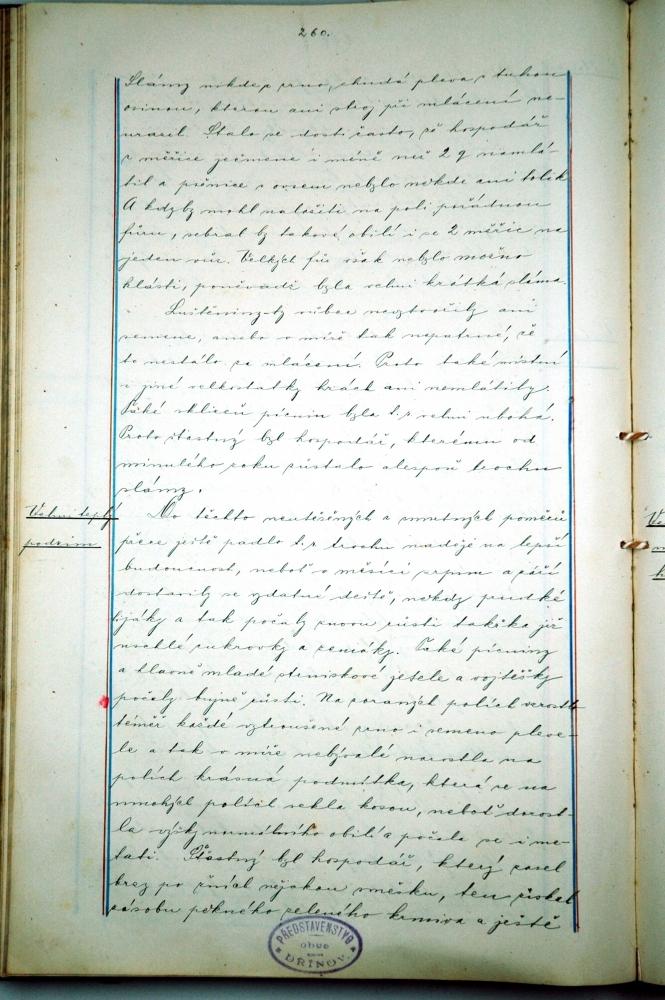 260.
Slámy někde zrno, chudá pleva s tuhou
osinou, kterou ani stroj při mlácení ne-
urazil. Stalo se dosti často, že hospodář
z měřice ječmene i méně než 2 q namlá-
til a pšenice s ovsem nebylo někde ani tolik.
A kdyby mohl naložiti na poli pořádnou
fůru, sebral by takové obilí i se 2 měřic na
jeden vůz. Velkých fůr však nebylo možno
klásti, poněvadž byla velmi krátká sláma.
Luštěniny-ty vůbec nevytvořily ani
semene, anebo v míře tak nepatrné, že
to nestálo za mlácení. Proto také místní
i jiné velkostatky hrách ani nemlátily.
Také sklizeň pícnin byla t.r. velmi ubohá.
Proto šťastný byl hospodář, kterému od
minulého roku zůstalo alespoň trochu
slámy.
Velmi teplý
podzim
Do těchto neutěšených a smutných poměrů
přece ještě padlo t.r. trochu naděje na lepší
budoucnost, neboť v měsíci srpnu a září
dostavily se vydatné deště, někdy prudké
lijáky a tak počaly znovu růsti takřka již
uschlé cukrovky a zemáky. Také pícniny
a hlavně mladé strniskové jetele a vojtěšky
počaly bujně růsti. Na zoraných polích vzrostlo
téměř každé vytroušené zrno i semeno pleve-
le a tak v míře nebývalé narostla na
polích krásná podmítka, která se na
mnohých polích sekla kosou, neboť dorost-
la výšky normálního obilí a počala se i me-
tati. Šťastný byl hospodář, který zasel
brzy po žních nějakou směsku, ten získal
zásobu pěkného zeleného krmiva a ještě
PŘEDSTAVENSTVO
obce
DŘÍNOV.